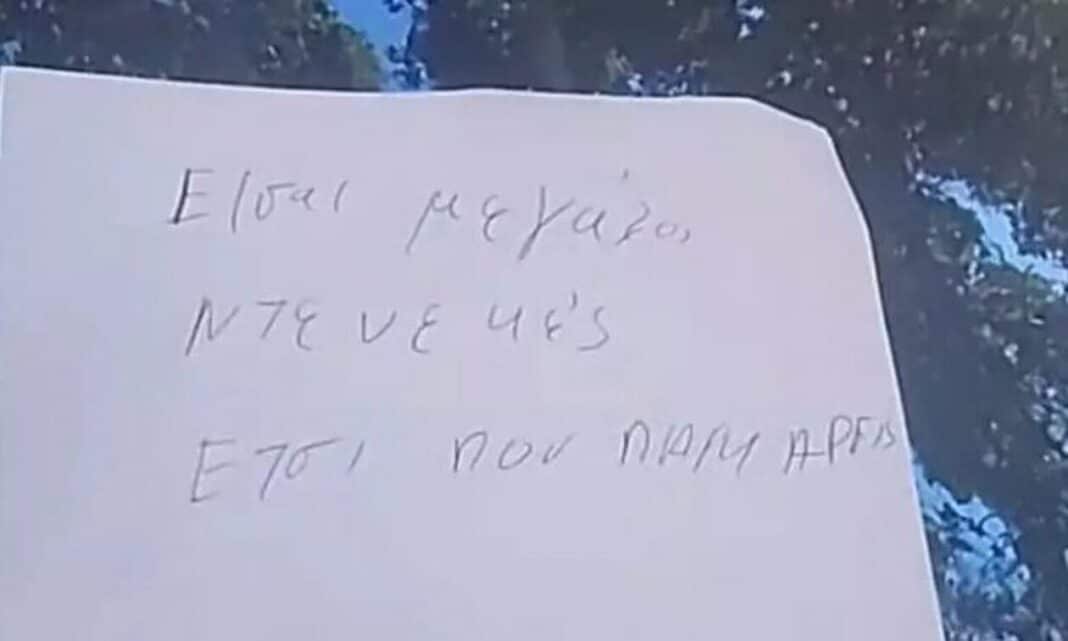 Είσαι μεγάλος
ντενεκές
Ετσι που ΠΑΡΚΑΡΕΙΣ